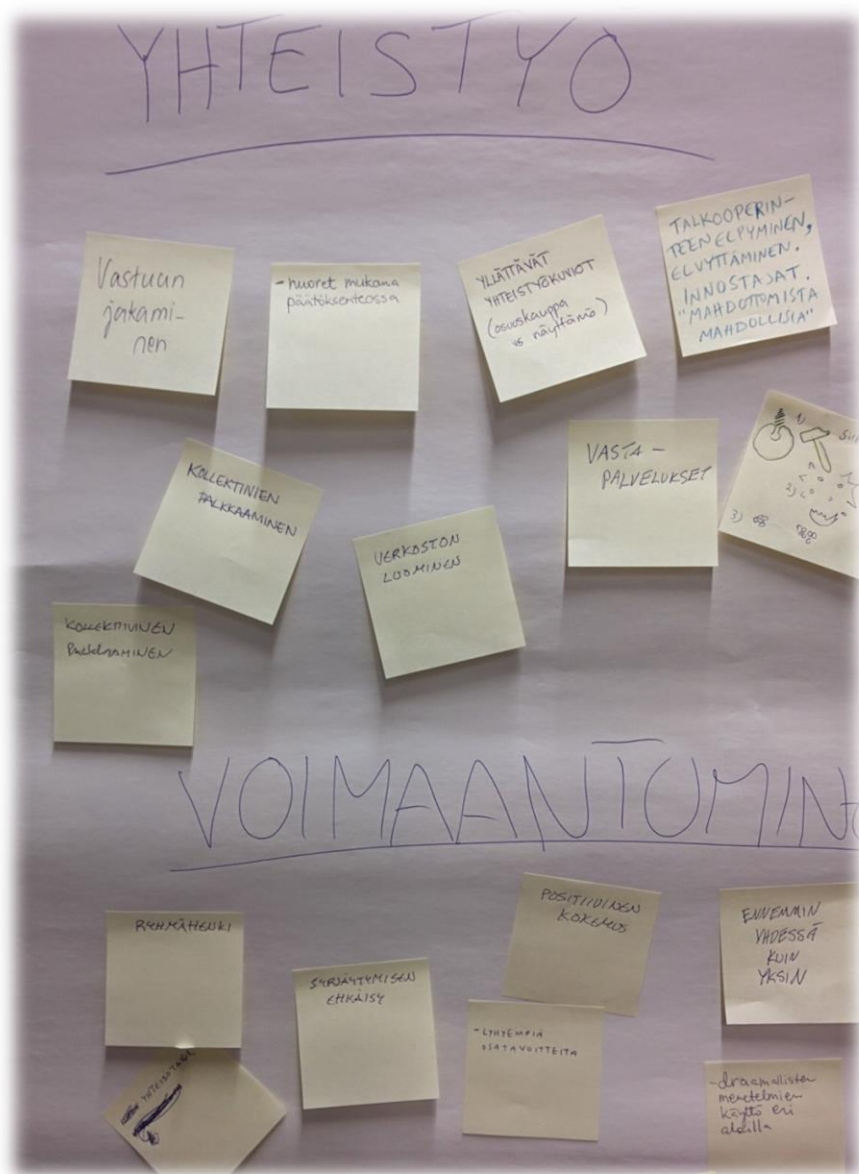 YHTEISTYÖ
Vastuun
jakami-
nen
- nuoret mukana
päätöksenteossa
YLLÄTTÄVÄT
YHTEISTYÖKUVIOT
(osuuskauppa
vs näyttämö)
TALKOOPERIN-
TEEN ELPYMINEN,
ELVYTTÄMINEN.
INNOSTAJAT.
"MAHDOTTOMISTA
MAHDOLLISIA"
KOLLEKTINIEN
PALKKAAMINEN
VERKOSTON
LUOMINEN
VASTA-
PALVELUKSET
1)
2)
3)
KOLLEKTIIVINEN
VOIMAANTUMIN
RYHMÄHENKI
SYRJÄYTYMISEN
EHKÄISY
POSITIIVINEN
KOKEMUS
ENNEMMIN
YHDESSÄ
KUIN
YKSIN
- LYHYEMPIÄ
OSATAVOITTEITA
- draamallisten
menetelmien
käyttö eri
aloilla